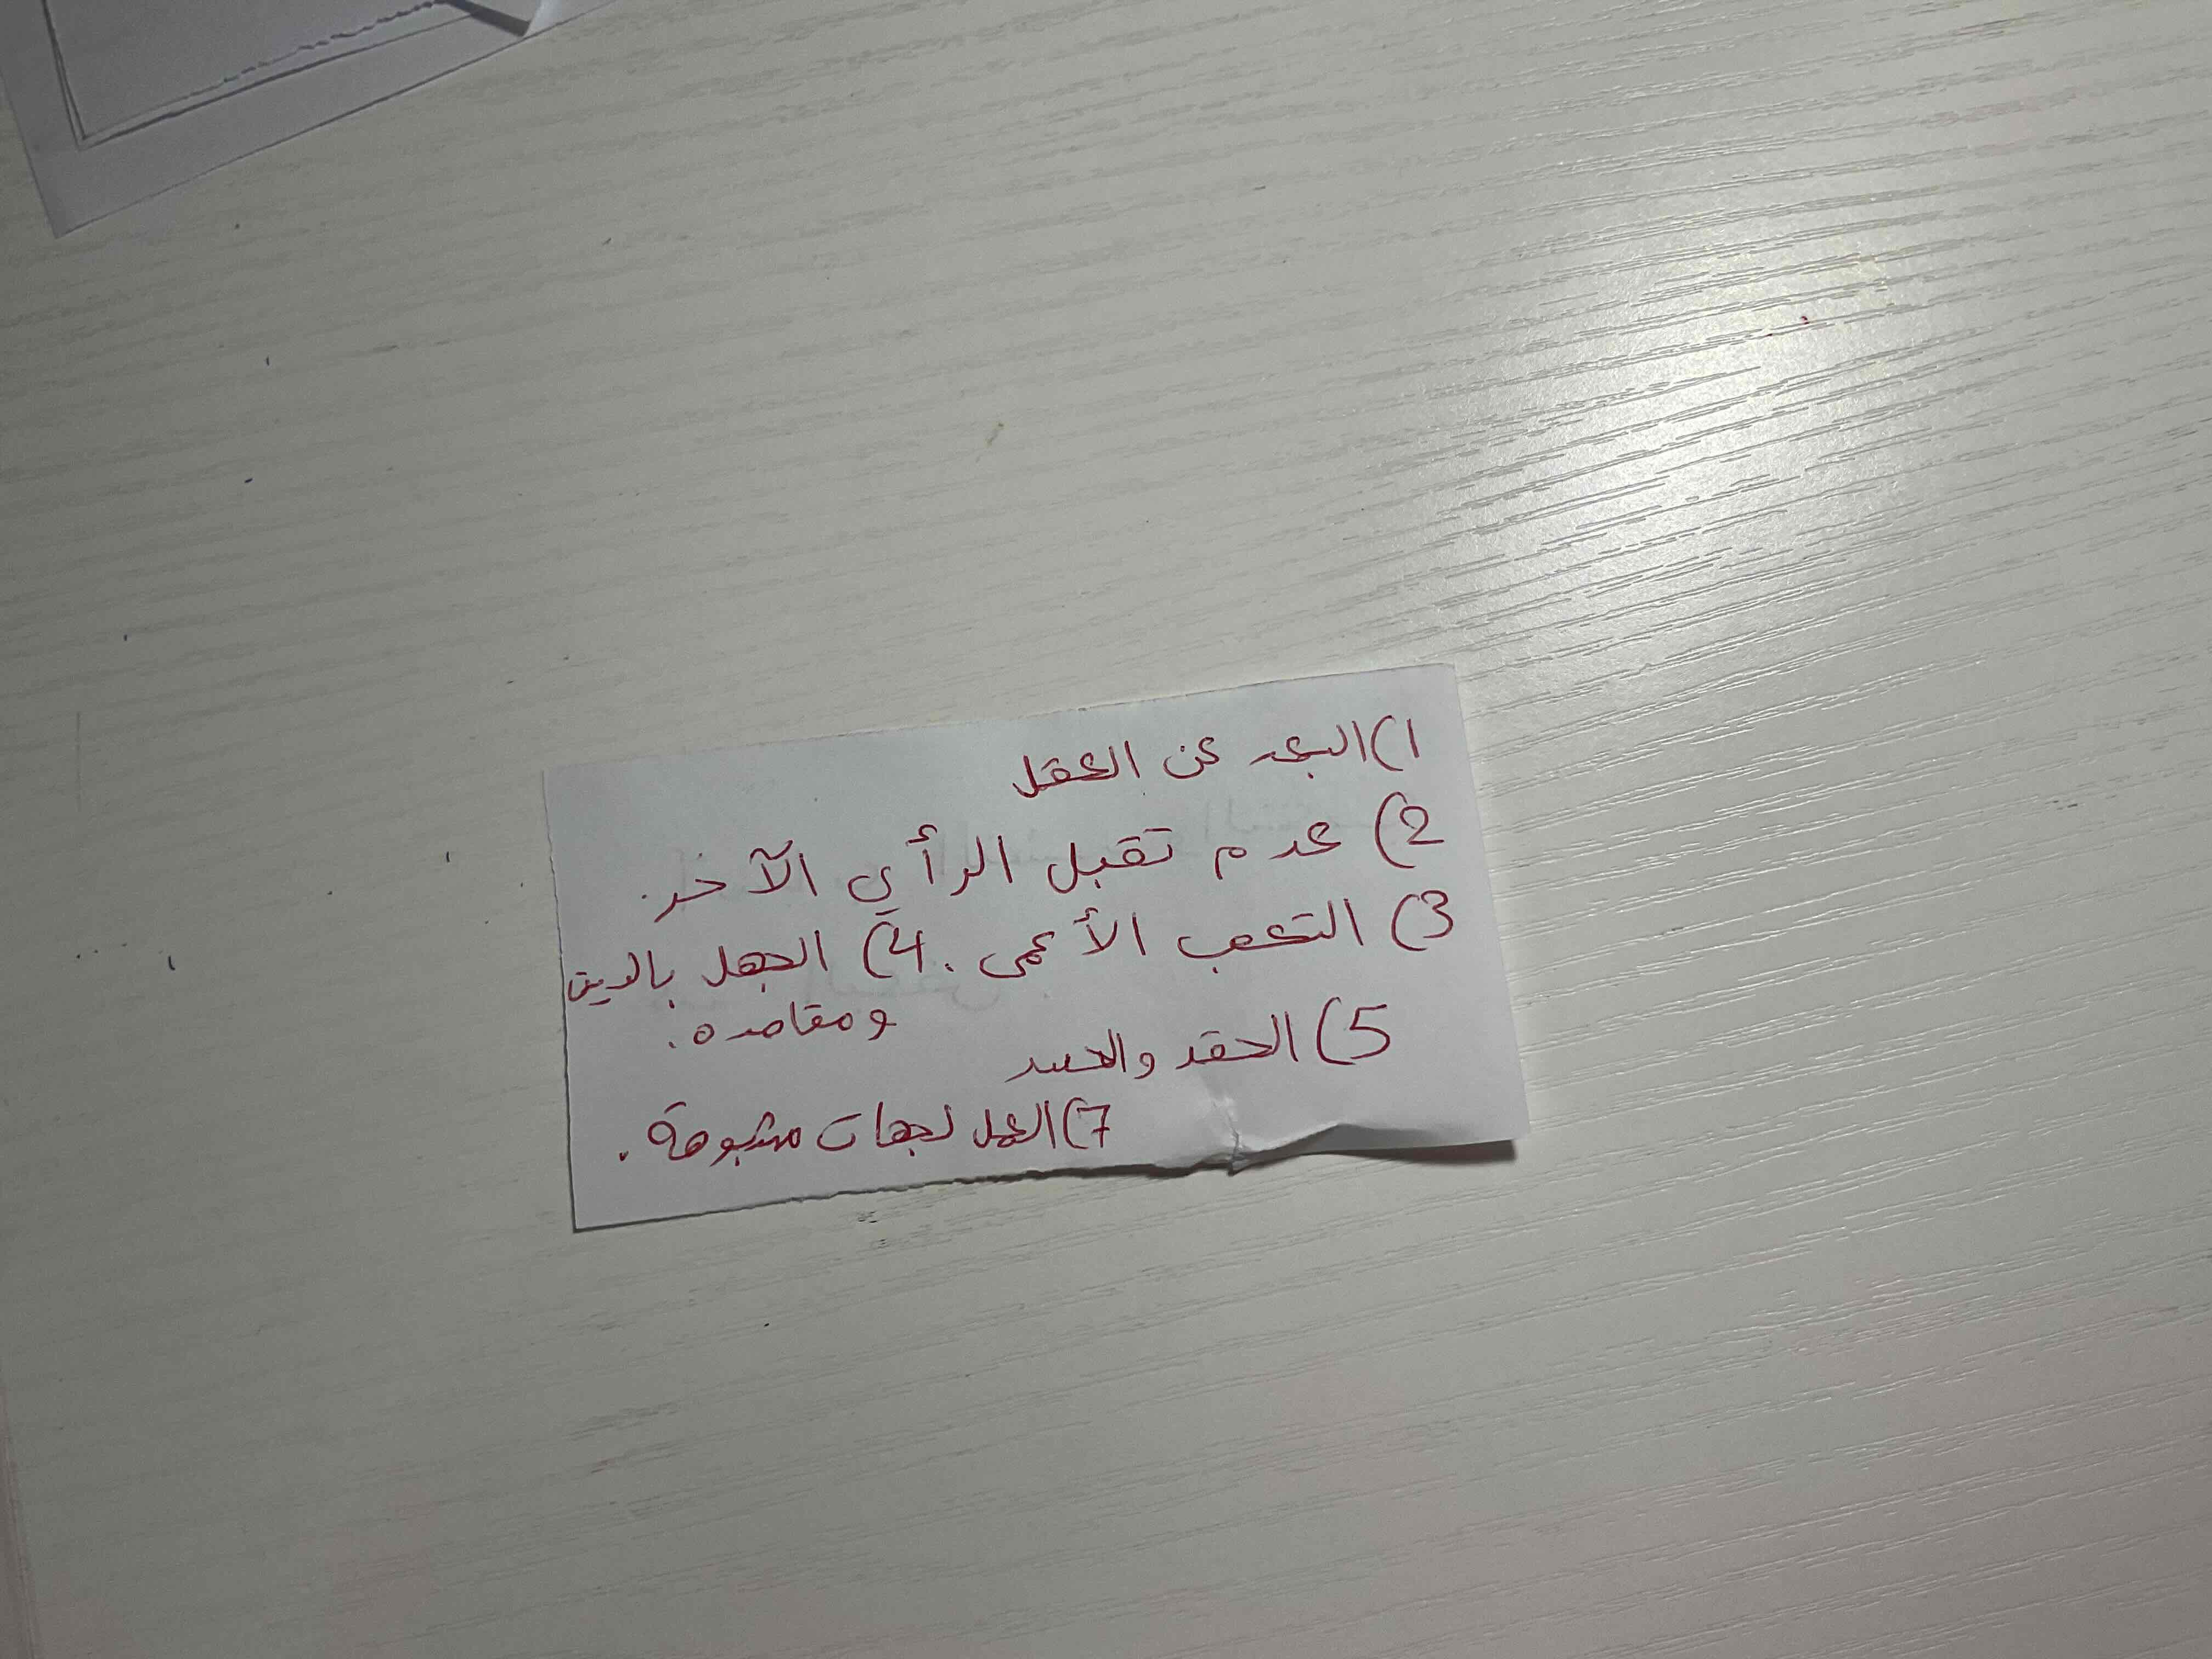 1) البعد عن العقل
2) عدم تقبل الرأي الآخر.
3) التعصب الأعمى. 4) الجهل بالدين
ومقاصده.
5) الحقد والحسد
7) العمل لجهات مشبوهة.